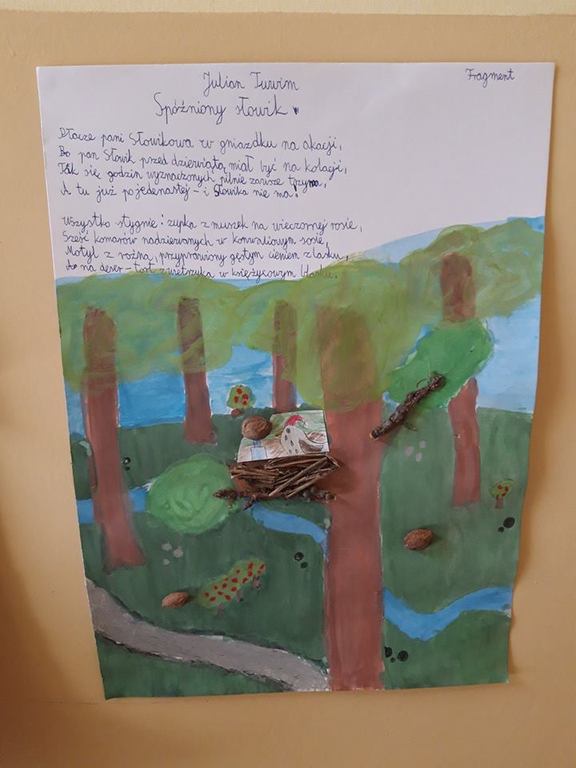 Julian Tuwim
Fragment
Spóźniony słowik
Płacze pani Słowikowa w gniazdku na akacji,
Bo pan Słowik przed dziewiątą miał być na kolacji,
Tak się godzin wyznaczonych pilnie zawsze trzyma,
A tu już po jedenastej - i Słowika nie ma!
Wszystko stygnie: zupka z muszek na wieczornej rosie,
Sześć komarów nadziewanych w konwaliowym sosie,
Motyl z rożna, przyprawiony gęstym cieniem z lasku,
A na deser - tort z wietrzyka w księżycowym blasku.